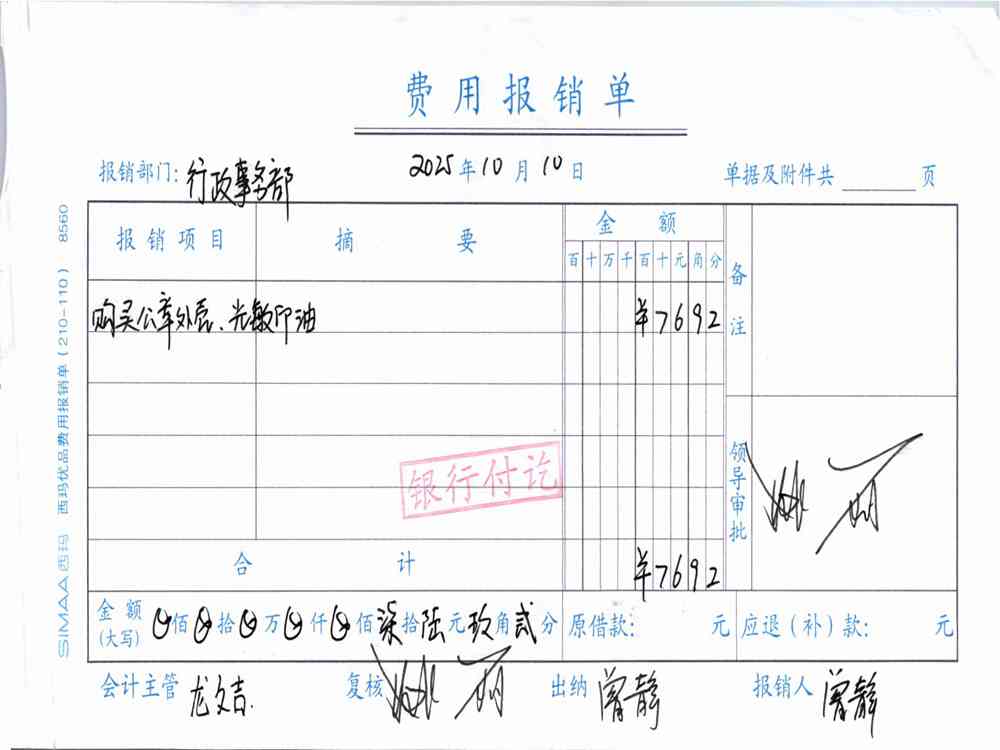 费用报销单
报销部门：行政事务部 2025年10月10日 单据及附件共 页
报销项目 摘要 金额 备注
百十万千百十元角分
购买公章外壳、光敏印油 ¥7692
银行付讫
领导审批
合计 ¥7692
金额(大写) 佰 拾 万 仟 佰柒拾陆元玖角贰分 原借款： 元 应退(补)款： 元
会计主管 龙文吉 复核 出纳 曾静 报销人 曾静
SIMAA西玛 西玛优品费用报销单(210-110) 8560